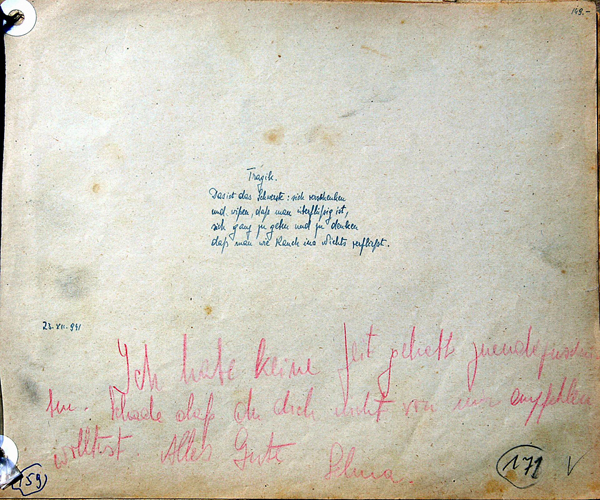 149.-
Tragik.
Das ist das Schwerste: sich verschenken
und wißen, daß man überflüßig ist,
sich ganz zu geben und zu denken
daß man wie Rauch ins Nichts verfließt.
23.XII.941
Ich habe keine Zeit gehabt zuende zuschrei
ben. Schade daß du dich nicht von mir empfehlen
wolltest. Alles Gute Selma.
159
171 V